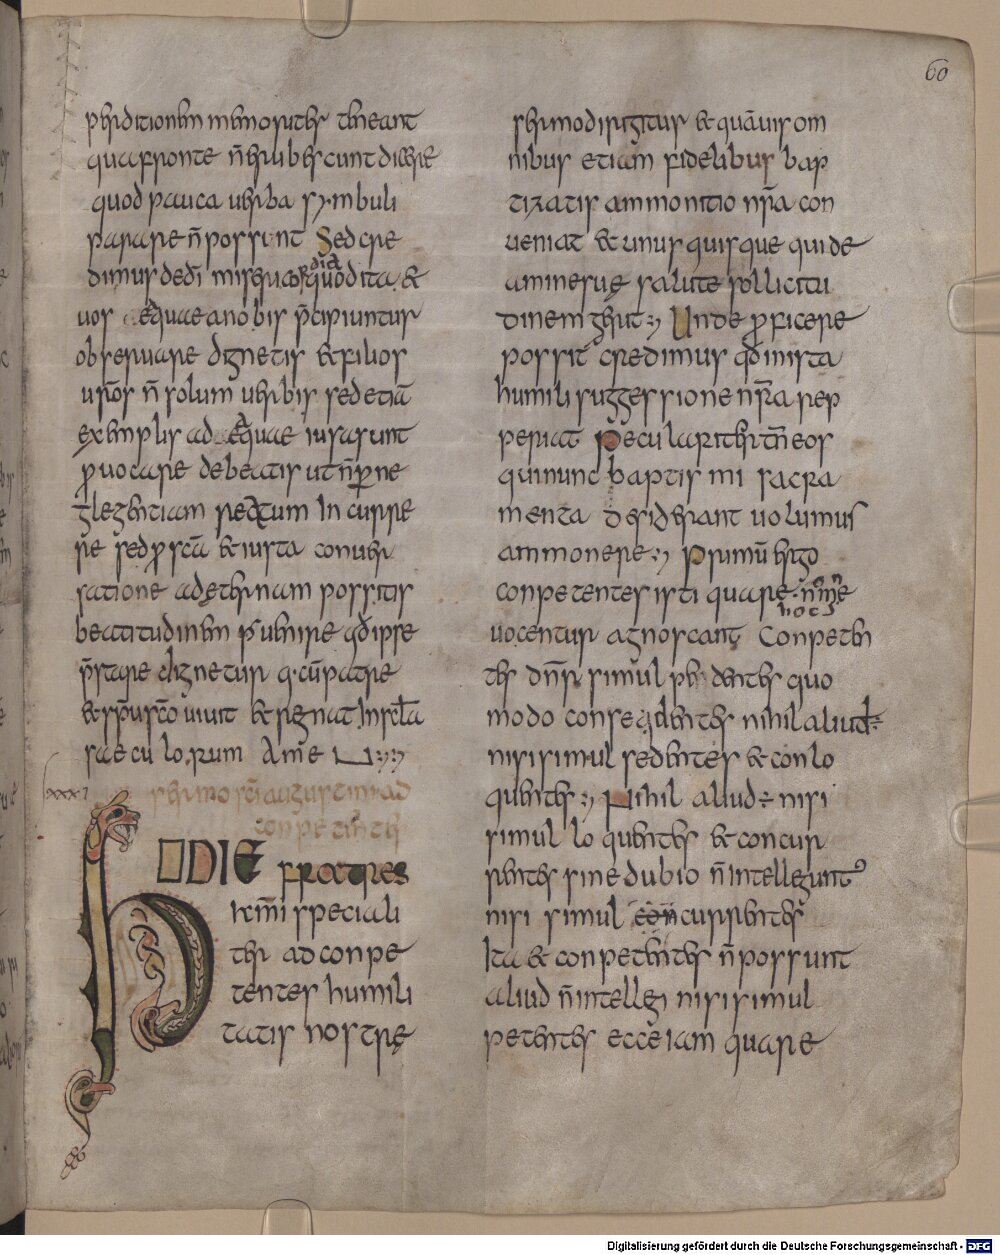 60
perditionem memoriter teneant
qua fronte n̄ erubescunt dicere
quod pauca uerba symbuli
parare n̄ possunt Sed cre
dimus de dei misericordia quod ita &
uos ea quae a nobis p̄cipiuntur
obseruare dignetis & filios
ur̄os n̄ solum uerbis sed etiā
exemplis ad ea quae iusta sunt
prouocare debeatis ut n̄ per ne
glegentiam reatum incurre
re sed pro scā & iusta conuer
satione ad ęternam possitis
beatitudinem peruenire qd̄ ipse
p̄stare dignetur q· cū patre
& sp̄u sco uiuit & regnat in scl̄a
saeculorum Ame
xxxi
sermo sci augustini ad
conpetentes
hODIE fratres
kmi speciali
ter ad conpe
tentes humili
tatis nostrę
sermo dirigitur & quāuis om
nibus etiam fidelibus bap
tizatis ammonitio nr̄a con
ueniat & unusquisque qui de
animę suę salute sollicitu
dinem gerit Unde proficere
possit credimus qd̄ in ista
humili suggessione nr̄a rep
periat Peculariter tn̄ eos
qui nunc baptismi sacra
menta desiderant uolumus
ammonere Primū ergo
conpetentes isti quare hoc nomē
uocentur agnoscant Conpeten
tes dn̄r simul petentes quo
modo consedentes nihil aliud ÷
nisi simul sedentes & conlo
quentes Nihil aliud ÷ nisi
simul loquentes & concur
rentes sine dubio n̄ intelleguntur
nisi simul currentes
Ita & conpetentes n̄ possunt
aliud n̄ intellegi nisi simul
petentes ecce iam quare
Digitalisierung gefördert durch die Deutsche Forschungsgemeinschaft - DFG